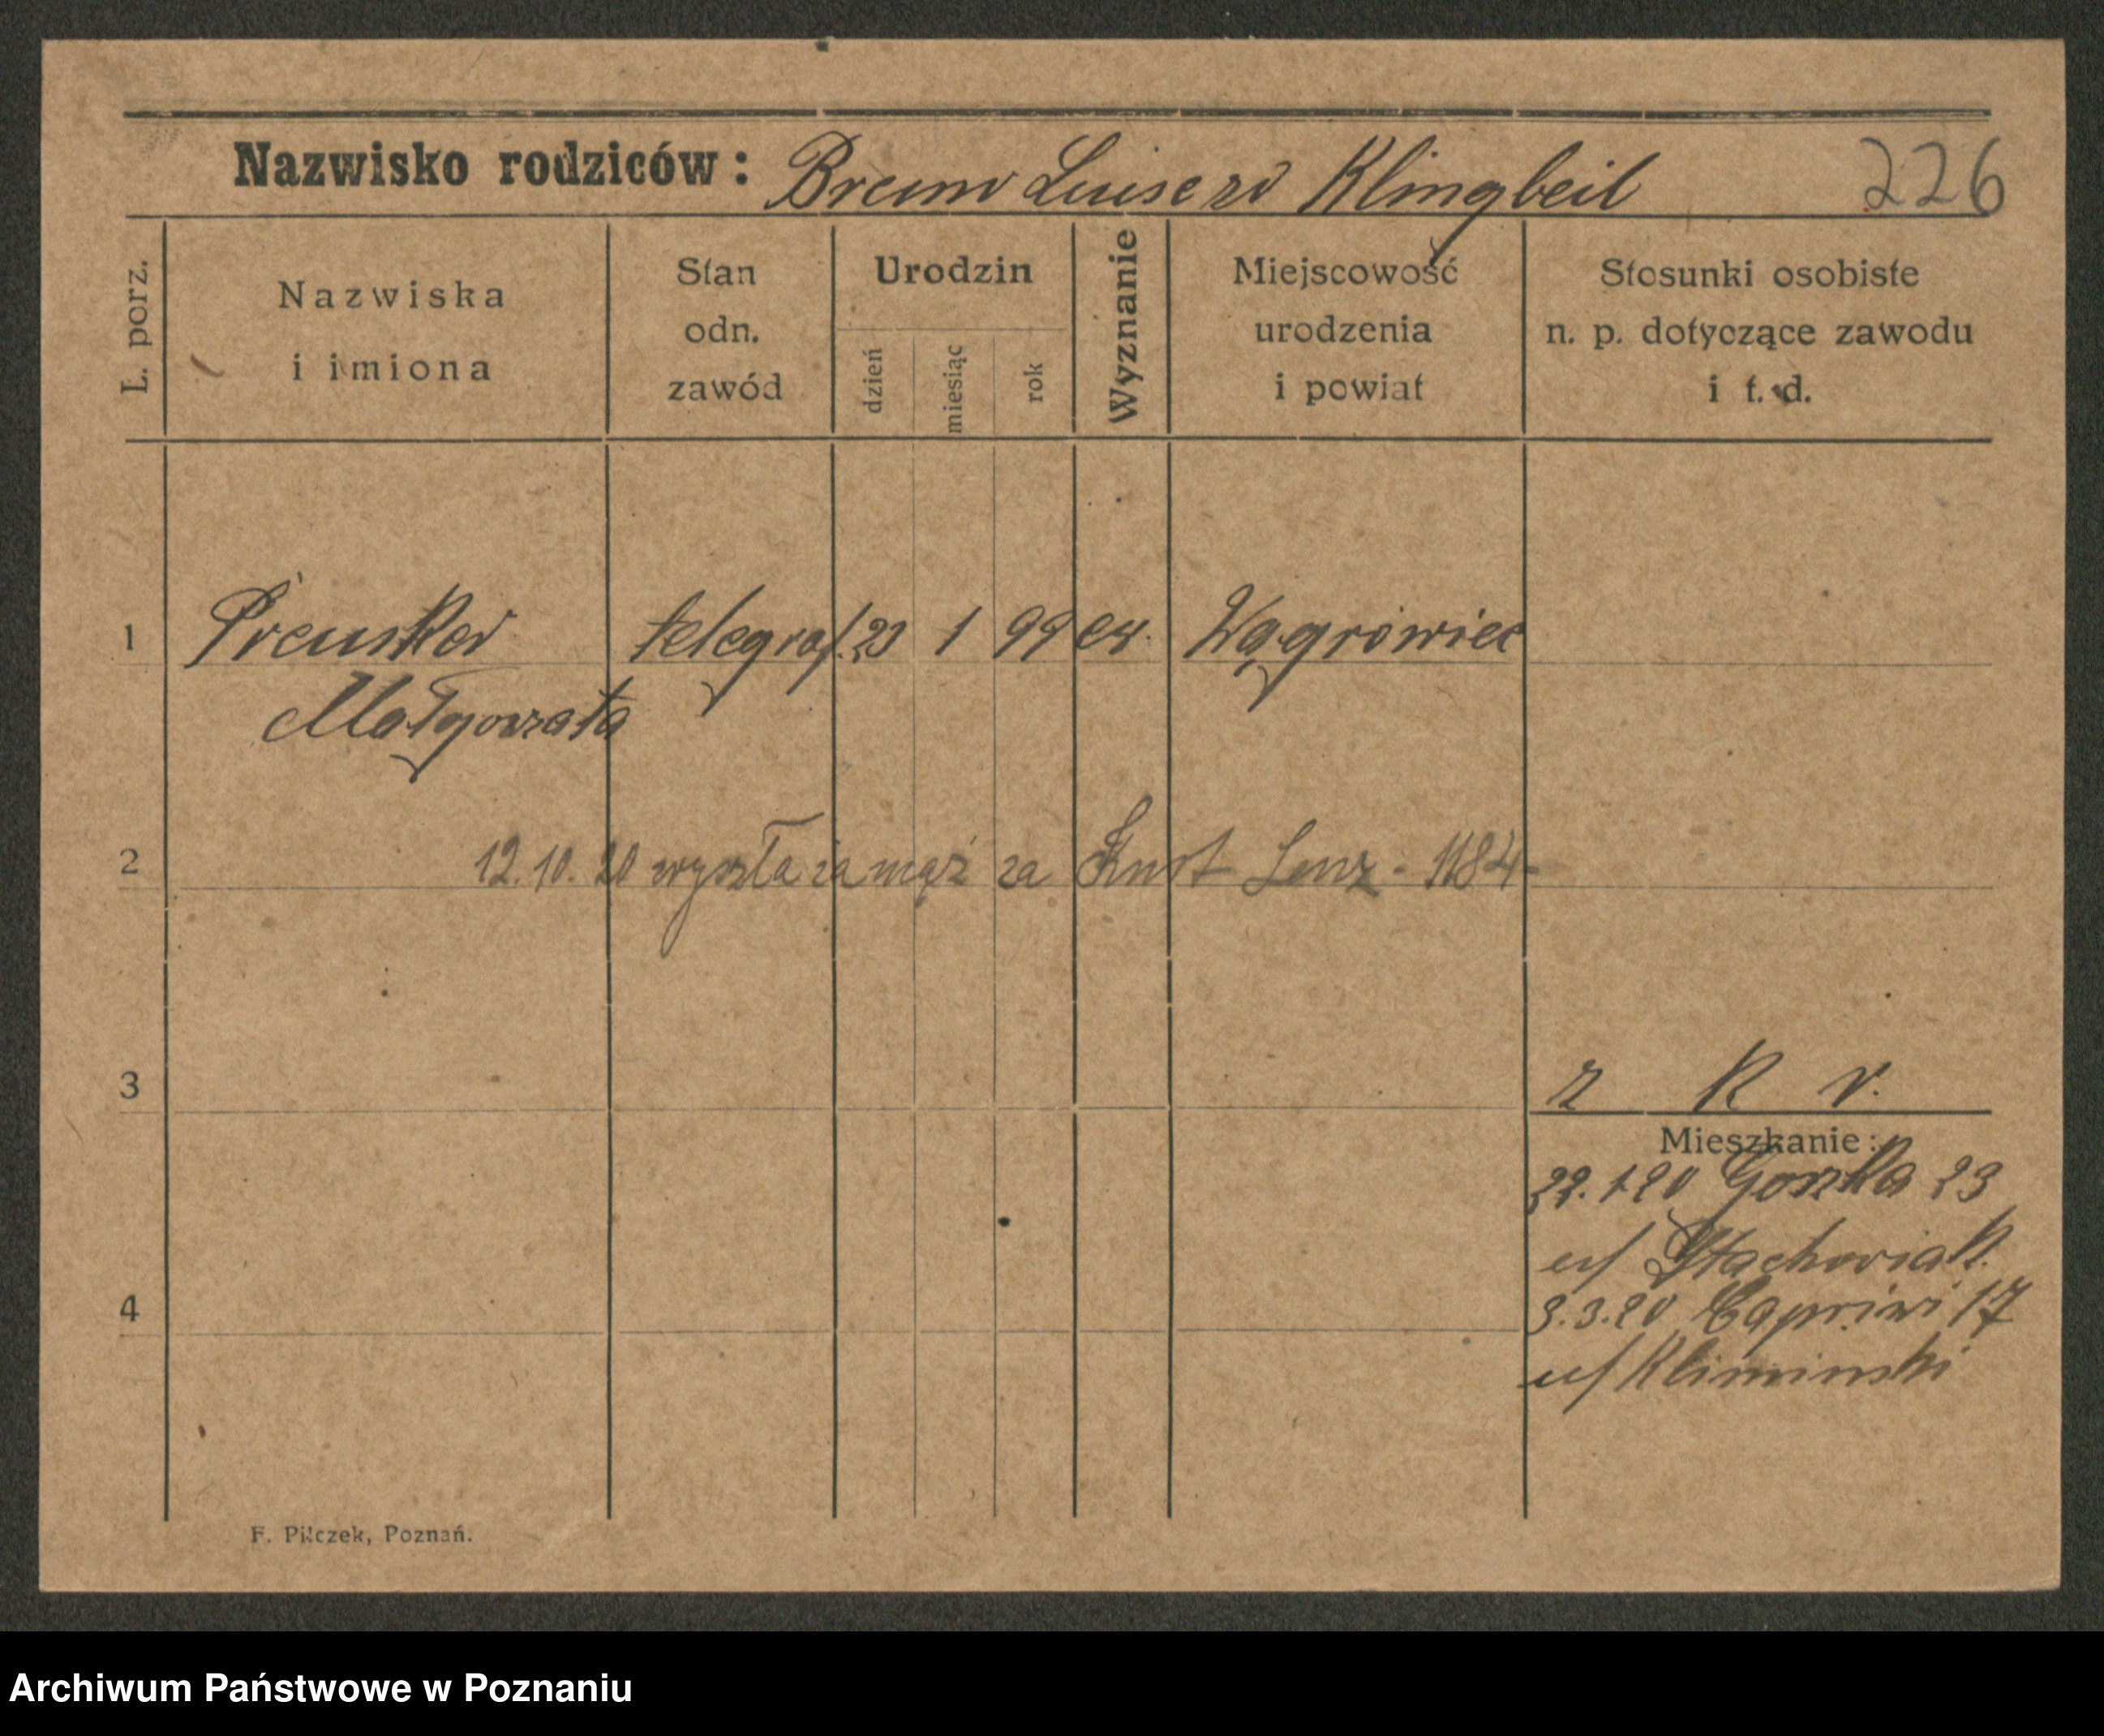 Nazwisko rodziców: Bruno Luise zd Klingbeil 226
L. porz.
Nazwiska
i imiona
Stan
odn.
zawód
Urodzin
dzień
miesiąc
rok
Wyznanie
Miejscowość
urodzenia
i powiat
Stosunki osobiste
n. p. dotyczące zawodu
i t. d.
1 Preusker telegraf. 23 1 99 ew. Wągrówiec
Małgorzata
2 12.10.20 wyszła za mąż za Kurt Lenz - 1184
3
z K r.
Mieszkanie:
22.1.20 23
u/ Stachowiak
4
3.3.20 Capriwi 17
u/ Kliminski
F. Pilczek, Poznań.
Archiwum Państwowe w Poznaniu